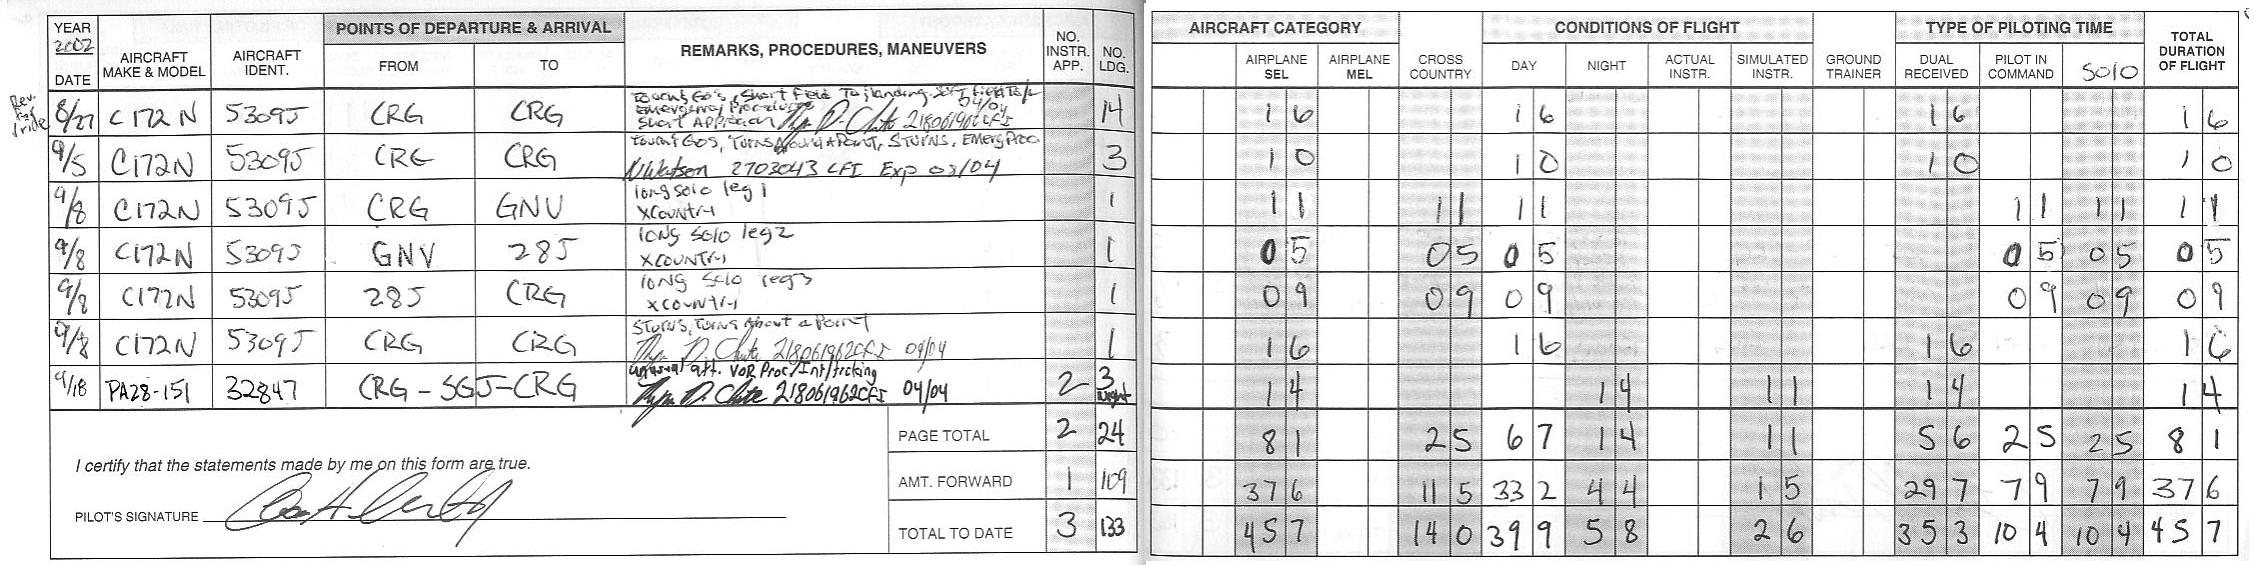 YEAR 2002 DATE AIRCRAFT MAKE & MODEL AIRCRAFT IDENT. POINTS OF DEPARTURE & ARRIVAL FROM TO REMARKS, PROCEDURES, MANEUVERS NO. INSTR. APP. NO. LDG. AIRCRAFT CATEGORY AIRPLANE SEL AIRPLANE MEL CROSS COUNTRY CONDITIONS OF FLIGHT DAY NIGHT ACTUAL INSTR. SIMULATED INSTR. GROUND TRAINER TYPE OF PILOTING TIME DUAL RECEIVED PILOT IN COMMAND SOLO TOTAL DURATION OF FLIGHT
8/27 C172N 5309J CRG CRG Short Field T landing 04/04 Emergency Procedures Short Approach 218061962CFI 14 1 6 1 6 1 6 1 6
9/5 C172N 5309J CRG CRG Touch & Gos, Turns Around A Point, S TURNS, Emerg Proc 3 1 0 1 0 1 0 1 0
N Watson 2703043 CFI Exp 03/04
9/8 C172N 5309J CRG GNV long solo leg 1 xcountry 1 1 1 1 1 1 1 1 1 1 1 1 1
9/8 C172N 5309J GNV 28J long solo leg 2 xcountry 1 0 5 0 5 0 5 0 5 0 5 0 5
9/8 C172N 5309J 28J CRG long solo leg 3 xcountry 1 0 9 0 9 0 9 0 9 0 9 0 9
9/8 C172N 5309J CRG CRG S TURNS, Turns About a Point 218061962CFI 04/04 1 1 6 1 6 1 6 1 6
9/18 PA28-151 32847 CRG - SGJ - CRG unusual att. VOR Proc/Int/tracking 218061962CFI 04/04 2 3 Night 1 4 1 4 1 1 1 4 1 4
PAGE TOTAL 2 24 8 1 2 5 6 7 1 4 1 1 5 6 2 5 2 5 8 1
I certify that the statements made by me on this form are true.
AMT. FORWARD 1 109 37 6 11 5 33 2 4 4 1 5 29 7 7 9 7 9 37 6
PILOT'S SIGNATURE
TOTAL TO DATE 3 133 45 7 14 0 39 9 5 8 2 6 35 3 10 4 10 4 45 7